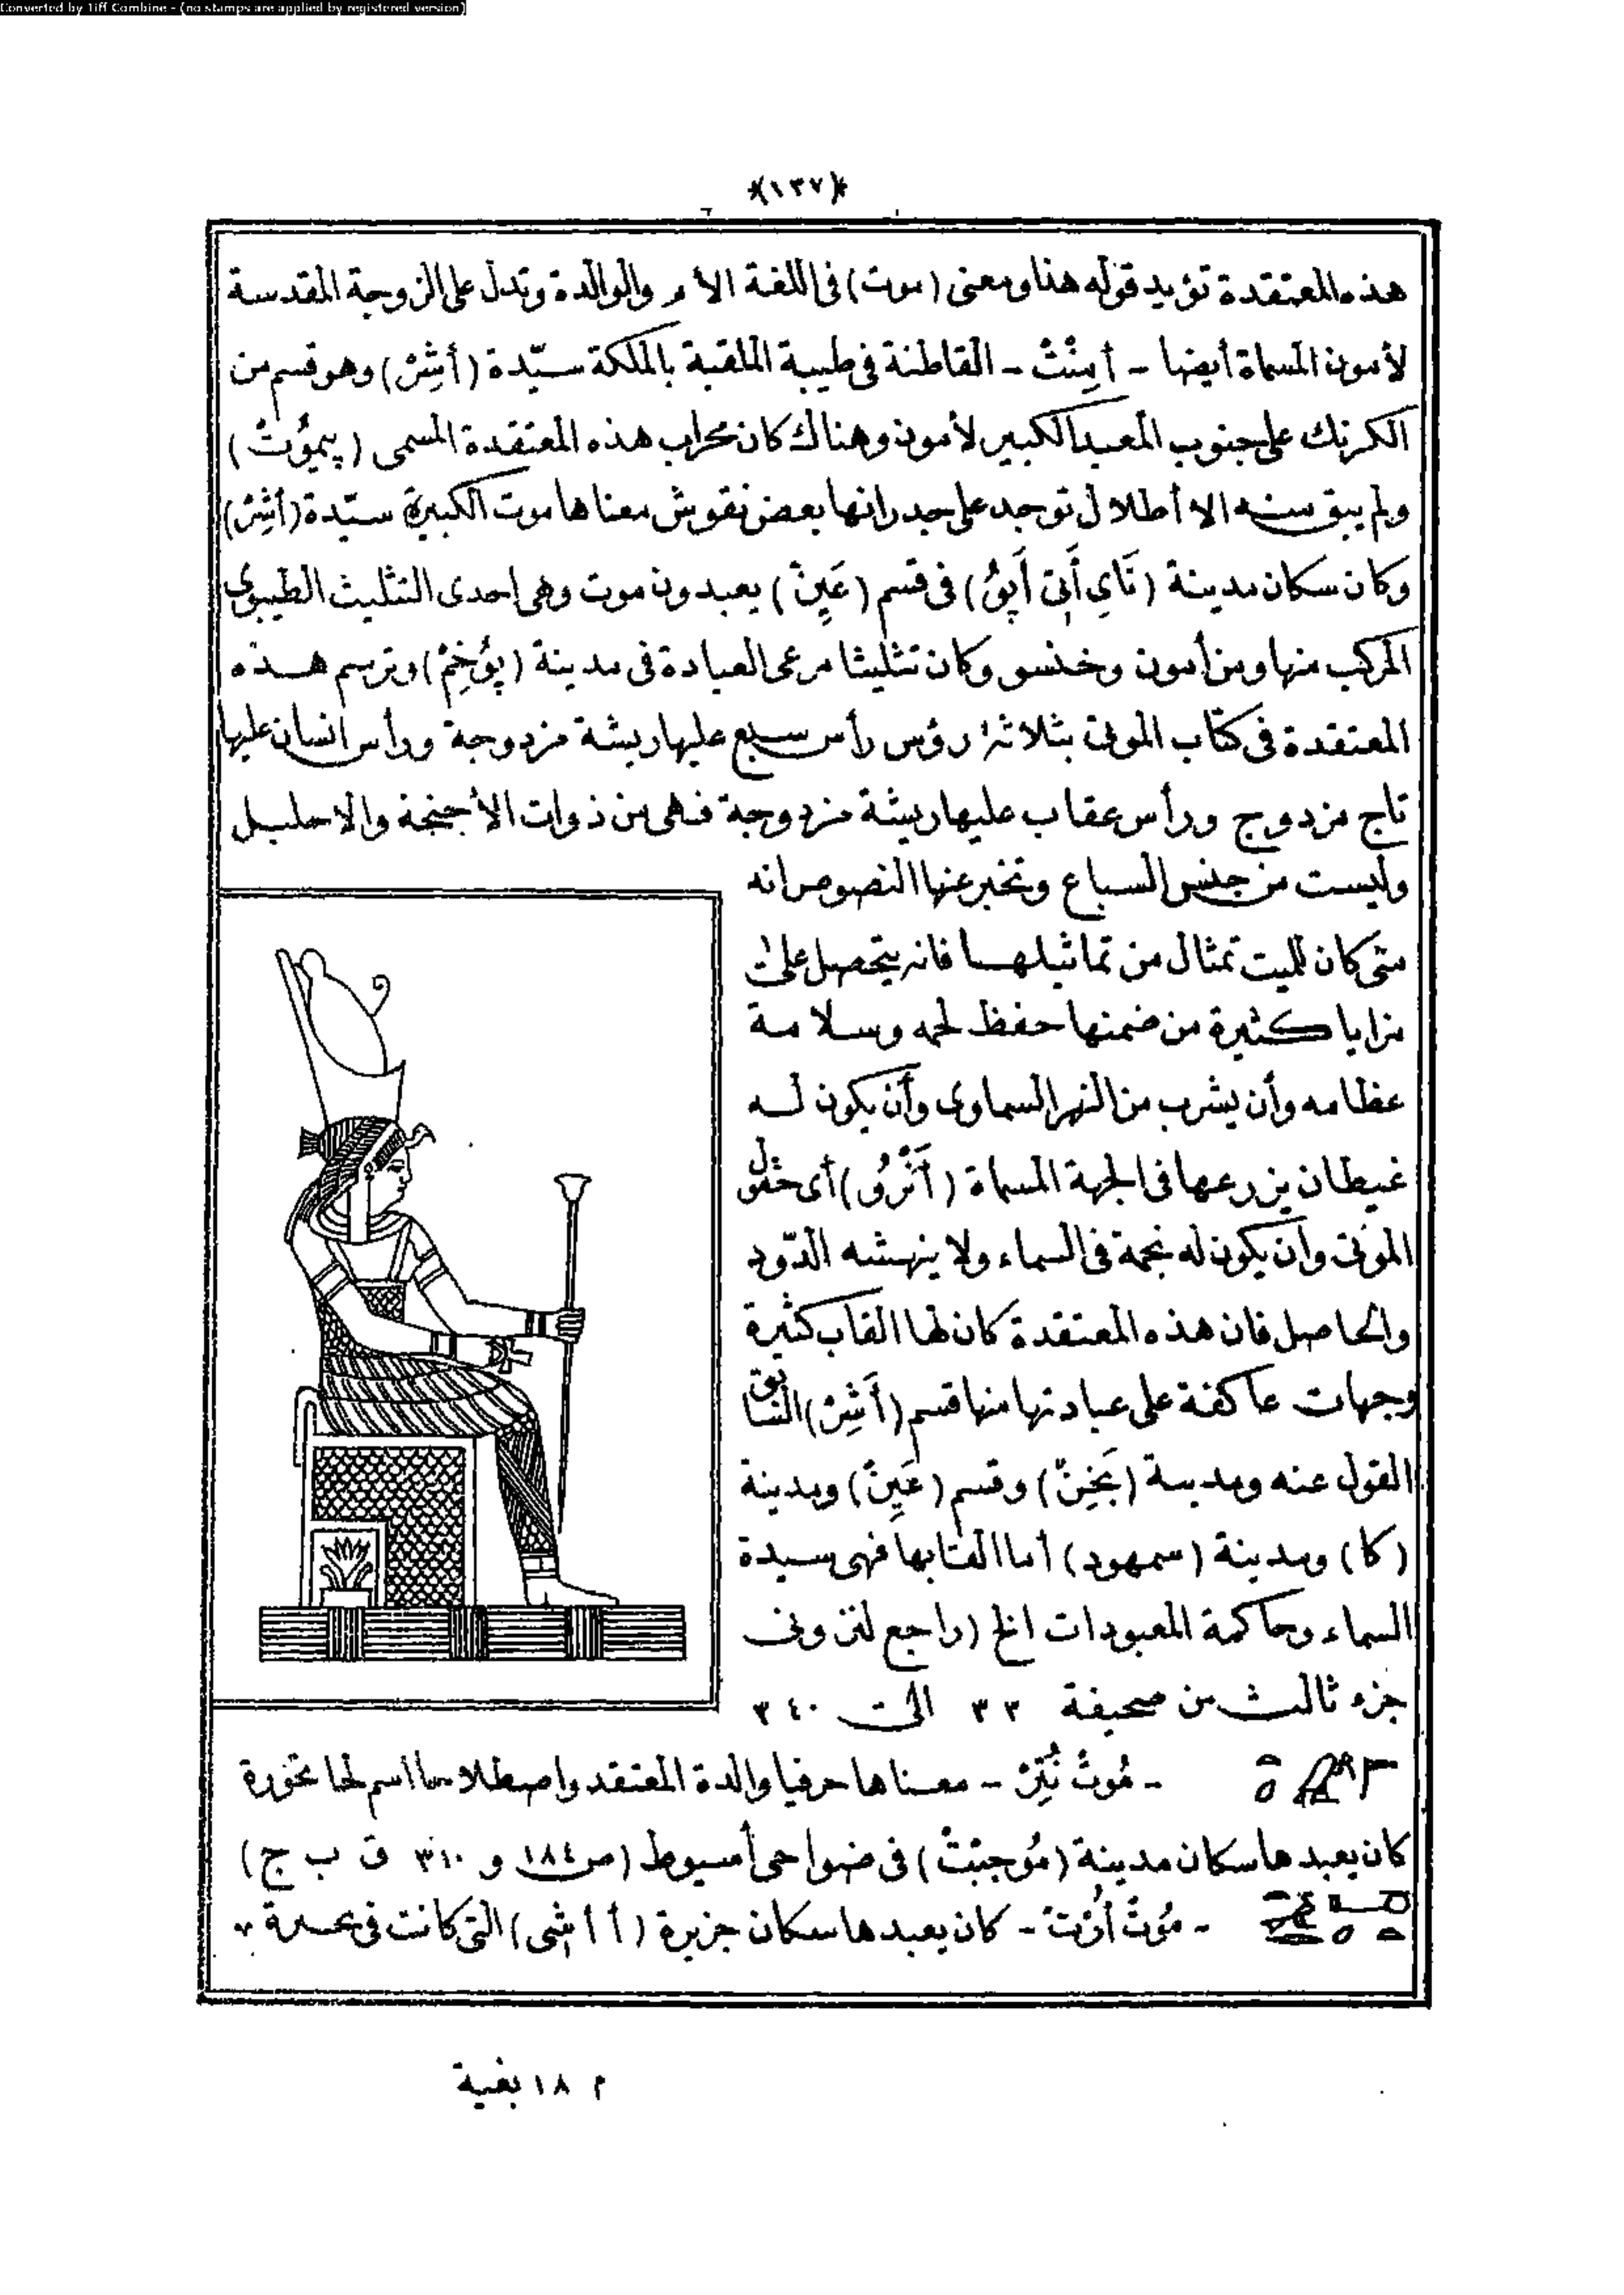 Converted by Tiff Combine - (no stamps are applied by registered version)
*(١٣٧)*
هذه المعتقدة تؤيد قوله هنا ومعنى (موت) فى اللغة الأم والوالدة وتدل على الزوجة المقدسة
لأمون المسماة أيضا - أمِنْتْ - القاطنة فى طيبة الملقبة بالملكة سيّدة (أشِرْ) وهو قسم من
الكرنك على جنوب المعبد الكبير لأمون وهناك كان محراب هذه المعتقدة المسمى (پِمُوتْ)
ولم يبق منه الا أطلال توجد على جدرانها بعض نقوش معناها موت الكبيرة سيّدة (أشِرْ)
وكان سكان مدينة (تَاىِ أَبِى أَپِقُ) فى قسم (عَپِنْ) يعبدون موت وهى احدى التثليث الطيبوى
المركب منها ومن أمون وخنسو وكان تثليثا مرعى العبادة فى مدينة (پُوخِمْ) وترسم هذه
المعتقدة فى كتاب الموتى بثلاثة رؤس رأس سبع عليها ريشة مزدوجة ورأس انسان عليها
تاج مزدوج ورأس عقاب عليها ريشة مزدوجة فهى من ذوات الأجنحة والاحليل
وليست من جنس السباع وتخبر عنها النصوص انه
متى كان للميت تمثال من تماثيلها فانه يتحصل على
مزايا كثيرة من ضمنها حفظ لحمه وسلامة
عظامه وأن يشرب من النهر السماوى وأن يكون له
غيطان يزرعها فى الجهة المسماة (أَنْرُو) أى حقول
الموتى وان يكون له نجمة فى السماء ولا ينهشه الدّود
والحاصل فان هذه المعتقدة كان لها القاب كثيرة
وجهات عاكفة على عبادتها منها قسم (أَشِرْ) السابق
القول عنه ومدينة (بَخِنْ) وقسم (عَپِنْ) ومدينة
(كا) ومدينة (سمهود) أما القابها فهى سيدة
السماء وحاكمة المعبودات الخ (راجع لنزونى
جزء ثالث من صحيفة ٣٣ الى ٣٤٠
- مُوتْ نُتِرْ - معناها حرفيا والدة المعتقد واصطلاحا اسم لحاتحورة
كان يعبدها سكان مدينة (مُوجِبْتْ) فى ضواحى أسيوط (ص ١٨٤ و ٣١٠ ق ب ج)
- مُوتْ أُرْتْ - كان يعبدها سكان جزيرة (أ أ شى) التى كانت فى بحيرة
م ١٨ بغية